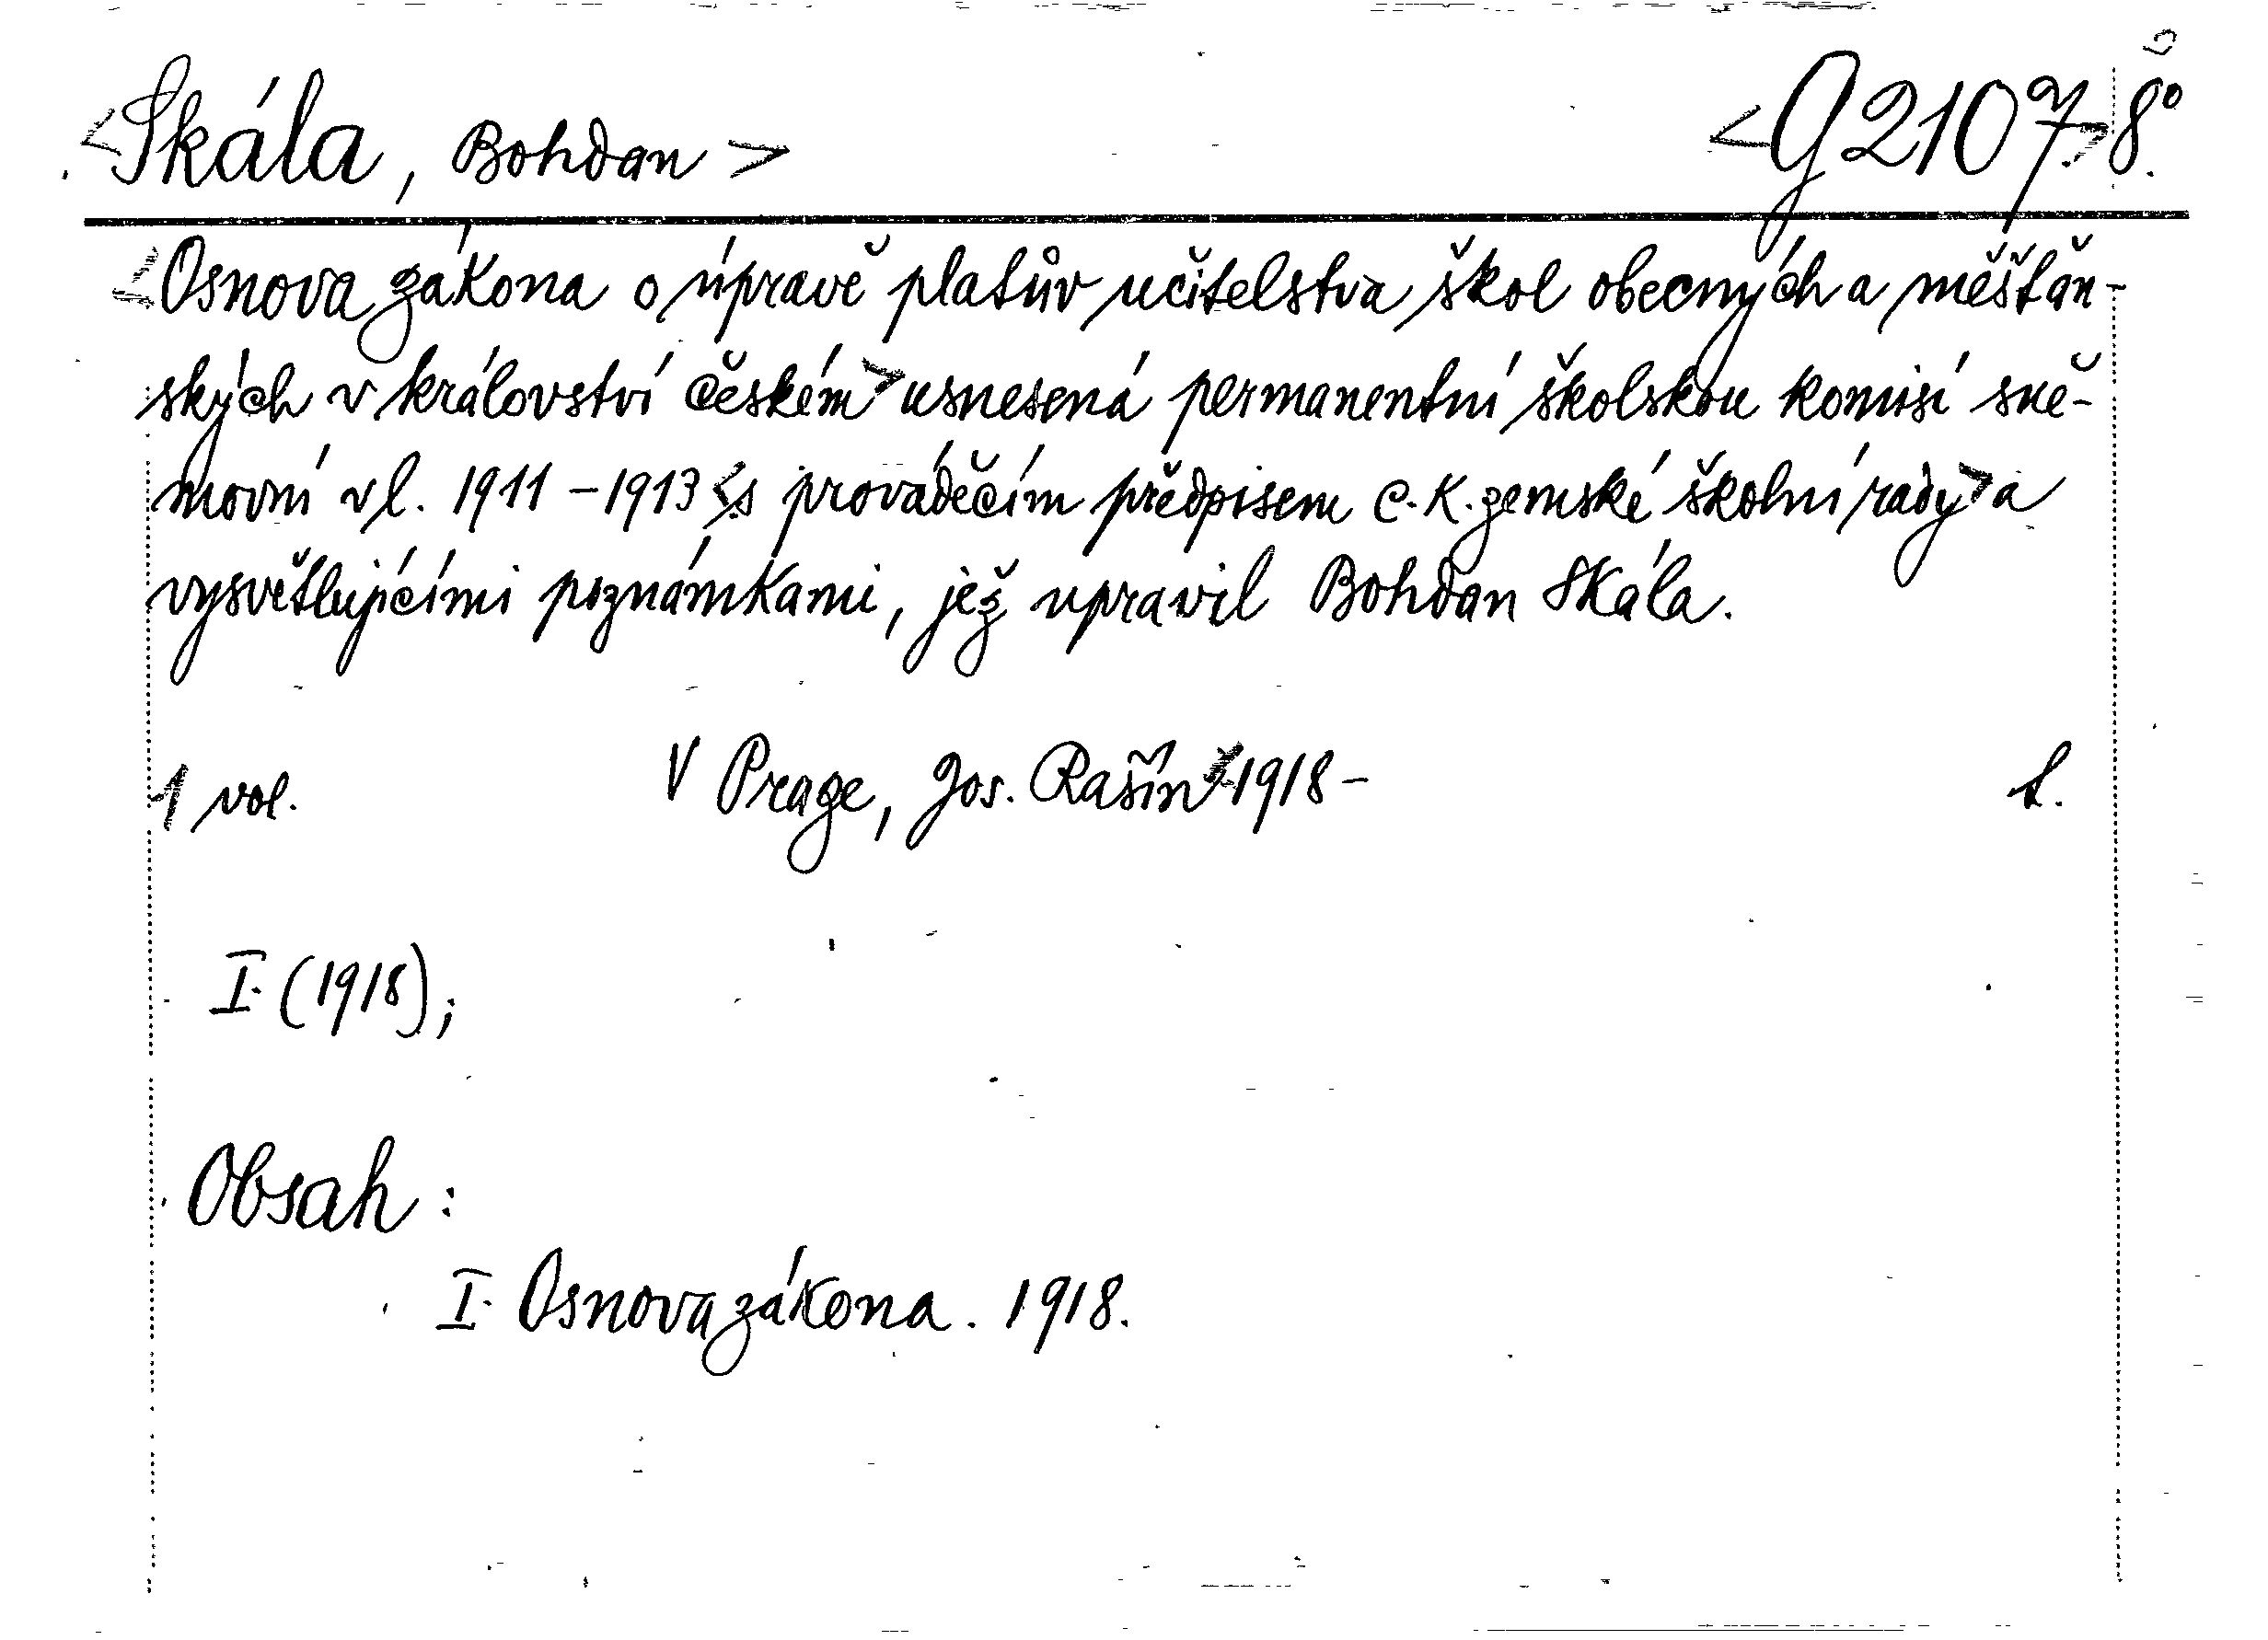 <Skála, Bohdan> <G 2107.> 8°.
<Osnova zákona o úpravě platův učitelstva škol obecných a měšťan-
ských v království Českém> usnesená permanentní školskou komisí sně-
movní v l. 1911-1913 <s prováděčím předpisem c. k. zemské školní rady> a
vysvětlujícími poznámkami, jež upravil Bohdan Skála.
1 vol. V Prage, Jos. Rašín <1918-
I. (1918);
Obsah:
I. Osnova zákona. 1918.